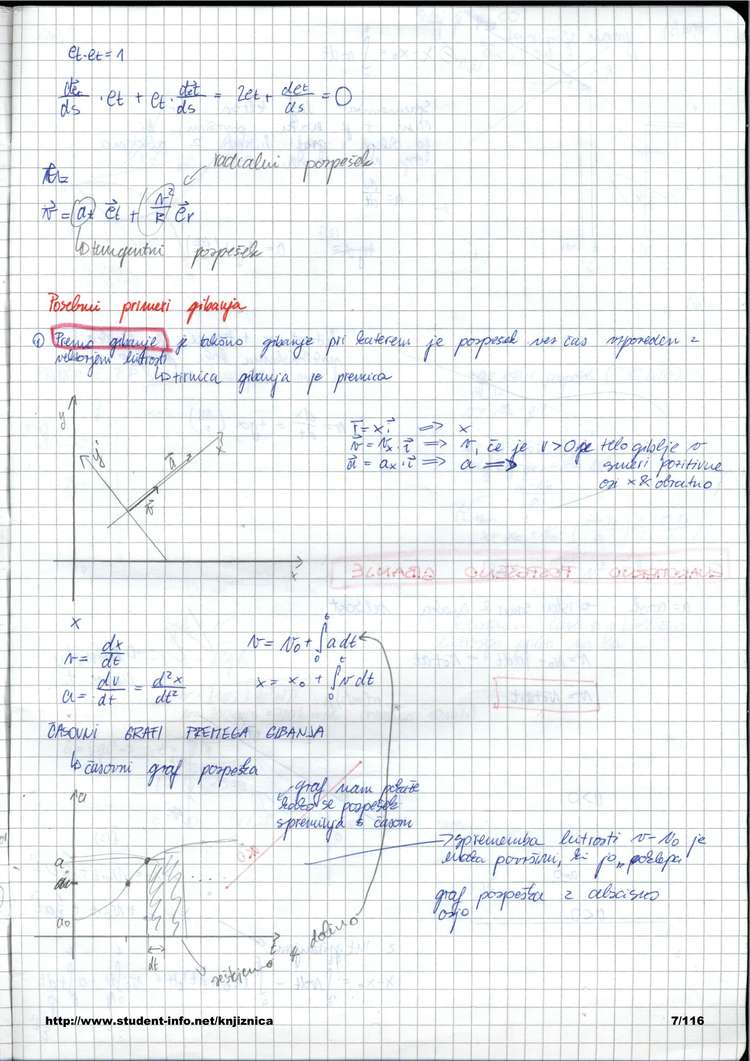 et·et = 1
det/ds · et + et · det/ds = 2et + det/ds = 0
radialni pospešek
v⃗ = at e⃗t + v²/R e⃗r
↳ tangentni pospešek
Posebni primeri gibanja
① Premo gibanje je takšno gibanje pri katerem je pospešek ves čas vzporeden z
vektorjem hitrosti
↳ tirnica gibanja je premica
y
y
a⃗
x
v⃗
x
r⃗ = x·i⃗ ⟹ x
v⃗ = vx·i⃗ ⟹ v, če je v>0 telo giblje v
a⃗ = ax·i⃗ ⟹ a ⟹ smeri pozitivne
osi x & obratno
x
v = dx/dt
a = dv/dt = d²x/dt²
v = v₀ + ∫₀ᵗ a dt
x = x₀ + ∫₀ᵗ v dt
ČASOVNI GRAFI PREMEGA GIBANJA
↳ časovni graf pospeška
a
graf nam pokaže
kako se pospešek
spreminja s časom
→ sprememba hitrosti v-v₀ je
enaka površini, ki jo oklepa
graf pospeška z abscisno
osjo
a
a₀
t
dt
seštejemo & dobimo
http://www.student-info.net/knjiznica
7/116